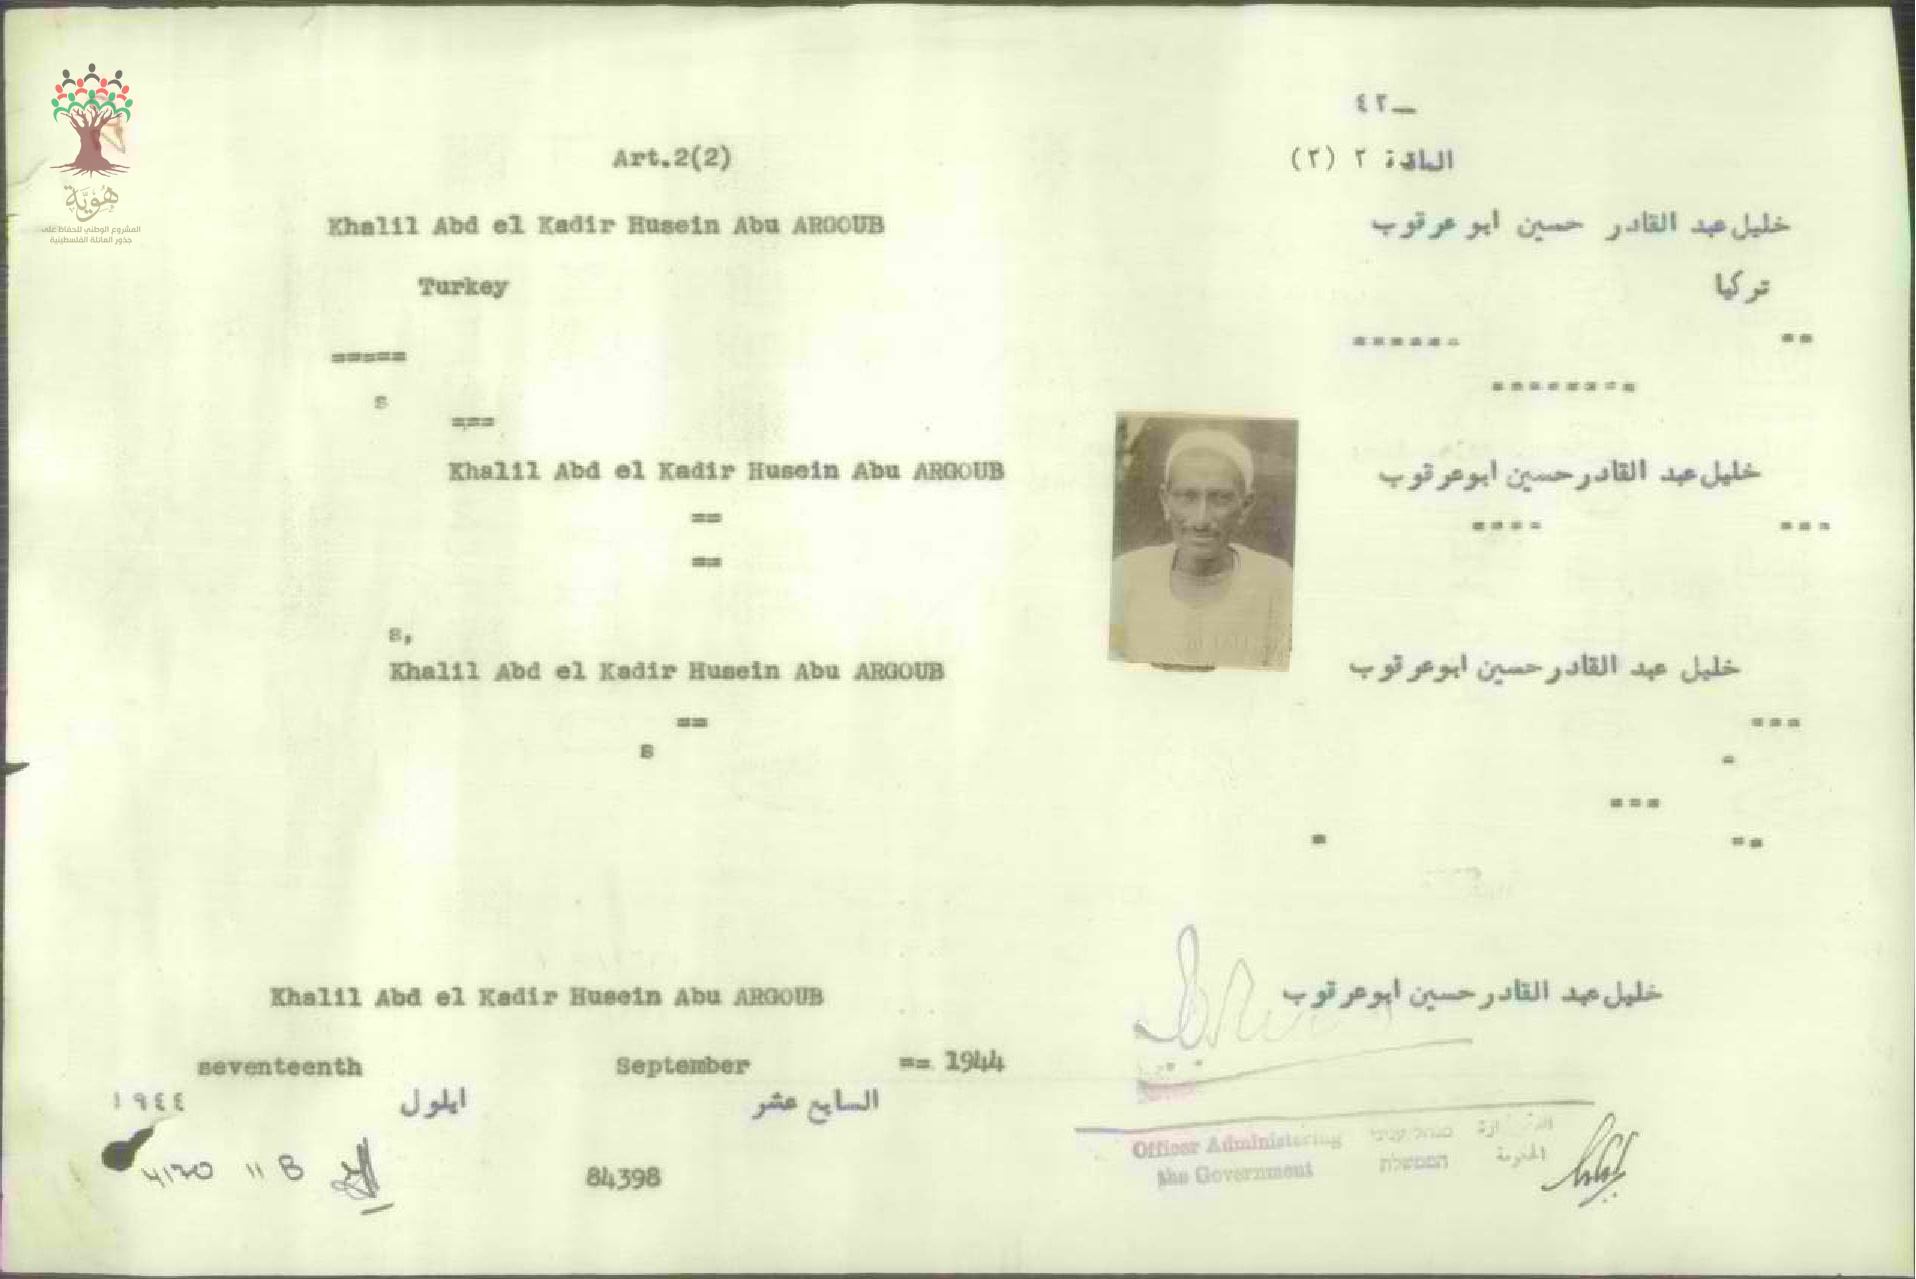 هُويَّة
المشروع الوطني للحفاظ على
جذور العائلة الفلسطينية
٤٢—
Art.2(2)
المادة ٢ (٢)
Khalil Abd el Kadir Husein Abu ARGOUB
خليل عبد القادر حسين ابو عرقوب
Turkey
تركيا
=====
s
===
Khalil Abd el Kadir Husein Abu ARGOUB
خليل عبد القادر حسين ابو عرقوب
==
==
s,
Khalil Abd el Kadir Husein Abu ARGOUB
خليل عبد القادر حسين ابو عرقوب
==
s
Khalil Abd el Kadir Husein Abu ARGOUB
خليل عبد القادر حسين ابو عرقوب
seventeenth September == 1944
السابع عشر ايلول ١٩٤٤
84398
Officer Administering
the Government
הממשלה